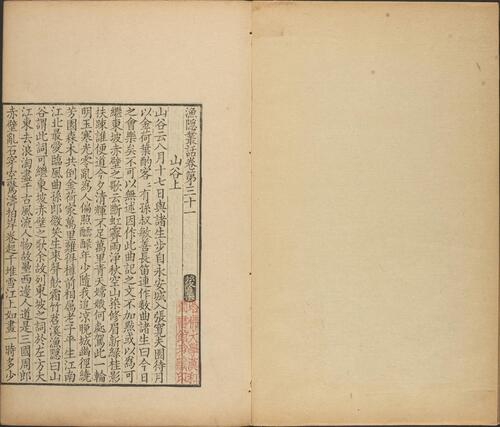 漁隱叢話卷第三十一
山谷上
山谷云八月十七日與諸生步自永安城入張寬夫園待月
以金荷葉酌客客有孫叔敏善長笛連作數曲諸生曰今日
之會樂矣不可以無述因作此曲記之文不加點或以為可
繼東坡赤壁之歌云斷虹霽雨淨秋空山染修眉新綠桂影
扶疎誰便道今夕清輝不足萬里青天姮娥何處駕此一輪
明玉寒光零亂為人偏照醽醁年少隨我追涼晚城幽徑繞
芳園森木共倒金荷家萬里難得樽前相屬老子平生江南
江北最愛臨風曲孫郎微笑坐來聲歕霜竹苕溪漁隱曰山
谷謂此詞可繼東坡赤壁之歌余故列東坡之詞於左方大
江東去浪淘盡千古風流人物故壘西邊人道是三國周郎
赤壁亂石穿空驚濤拍岸卷起千堆雪江山如畫一時多少